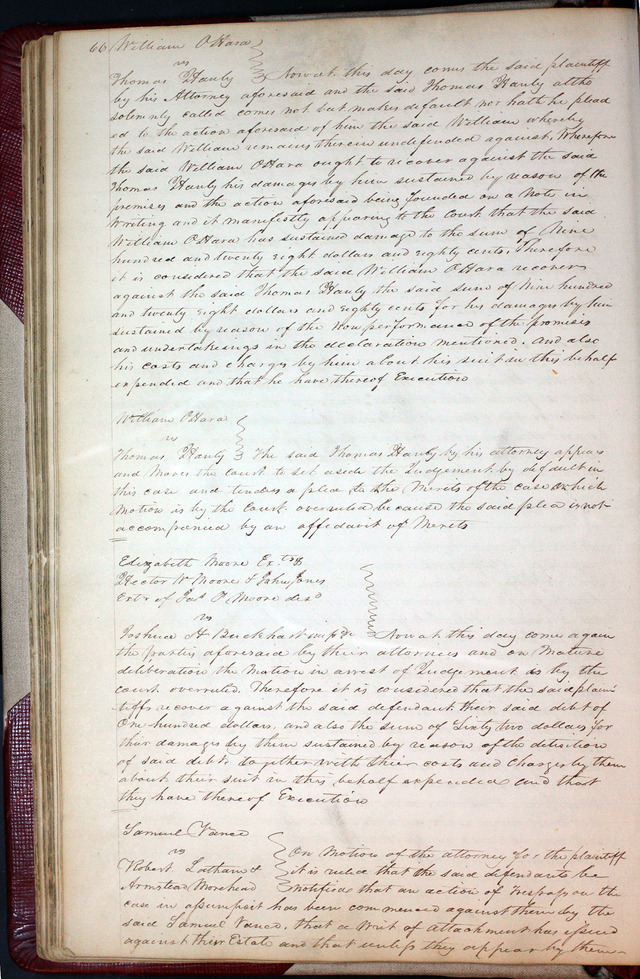 66 William O'Hara
vs
Thomas Hanly } Now at this day comes the said plaintiff
by his Attorney aforesaid and the said Thomas Hanly altho
solemnly called comes not but makes default nor hath he plead
ed to the action aforesaid of him the said William whereby
the said William remains therein undefended against, Wherefore
the said William O'Hara ought to recover against the said
Thomas Hanly his damages by him sustained by reason of the
premises and the action aforesaid being founded on a Note in
writing and it manifestly appearing to the court that the said
William O'Hara has sustained damage to the sum of Nine
hundred and twenty eight dollars and eighty cents, Therefore
it is considered that the said William O'Hara recover
against the said Thomas Hanly the said sum of Nine hundred
and twenty eight dollars and eighty cents for his damages by him
sustained by reason of the non performance of the promises
and undertakings in the declaration mentioned. And also
his costs and charges by him about his suit in this behalf
expended and that he have thereof Execution
William O'Hara
vs
Thomas Hanly } The said Thomas Hanly by his attorney appears
and Moves the Court to set aside the Judgement by default in
this case and tenders a plea to the Merits of the case Which
Motion is by the Court overruled because the said plea is not
accompanied by an affidavit of Merits
Elizabeth Moore Extrx
Hector W Moore & John Jones
Extrs of Jas P. Moore decd
vs
Joshua H Burkhart Now at this day come again
the parties aforesaid by their attornies and on Mature
deliberation the Motion in arrest of Judgement is by the
court overruled. Therefore it is considered that the said plain
tiffs recover against the said defendant their said debt of
One hundred dollars, and also the sum of Sixty two dollars for
their damages by them sustained by reason of the detention
of said debt. together with their costs and Charges by them
about their suit in this behalf expended and that
they have thereof Execution
Samuel Vance
vs
Robert Latham & } On Motion of the attorney for the plaintiff
Armstead Morehead it is ruled that the said defendants be
notified that an action of trespass on the
case in assumpsit has been commenced against them by the
said Samuel Vance, that a Writ of Attachment has issued
against their Estate and that unless they appear by them